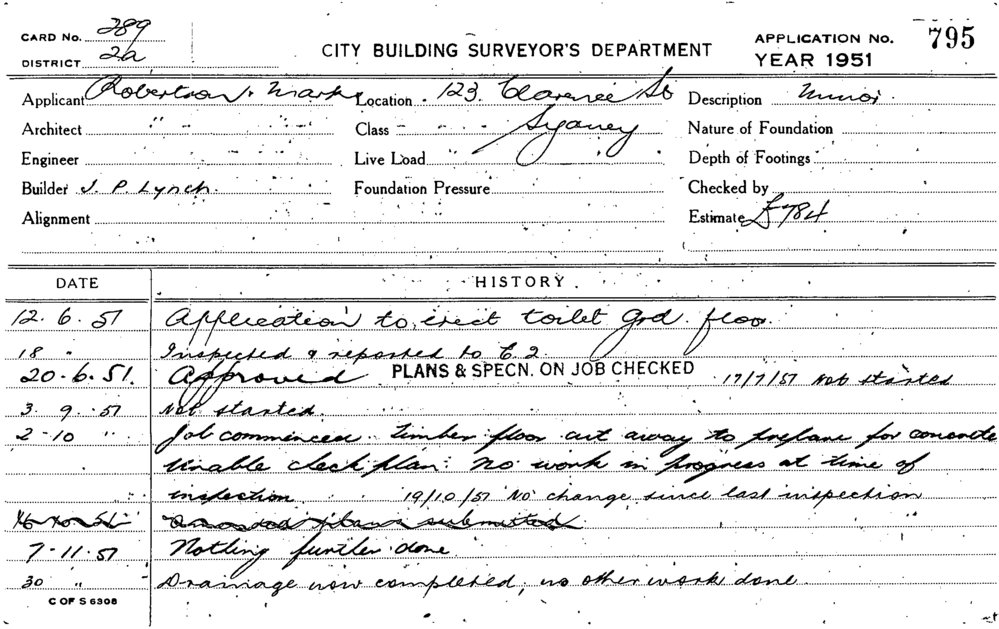 CARD No. 289
DISTRICT 2a
CITY BUILDING SURVEYOR'S DEPARTMENT
APPLICATION No. 795
YEAR 1951
Applicant Robertson & Marks Location 123 Clarence St Description Minor
Architect " " Class Sydney Nature of Foundation
Engineer Live Load Depth of Footings
Builder J. P. Lynch Foundation Pressure Checked by
Alignment Estimate £784
DATE HISTORY
12.6.51 Application to erect toilet Grd. floor
18 " Inspected & reported to C.2
20.6.51. Approved PLANS & SPECN. ON JOB CHECKED 17/7/51 Not started
3.9.51 Not started.
2-10 " Job commenced. Timber floor cut away to prepare for concrete
Unable check plan. No work in progress at time of
inspection 19/10/51 No change since last inspection
16-10-51 Amended plans submitted
7-11-51 Nothing further done
30 " Drainage now completed, no other work done.
C OF S 6308